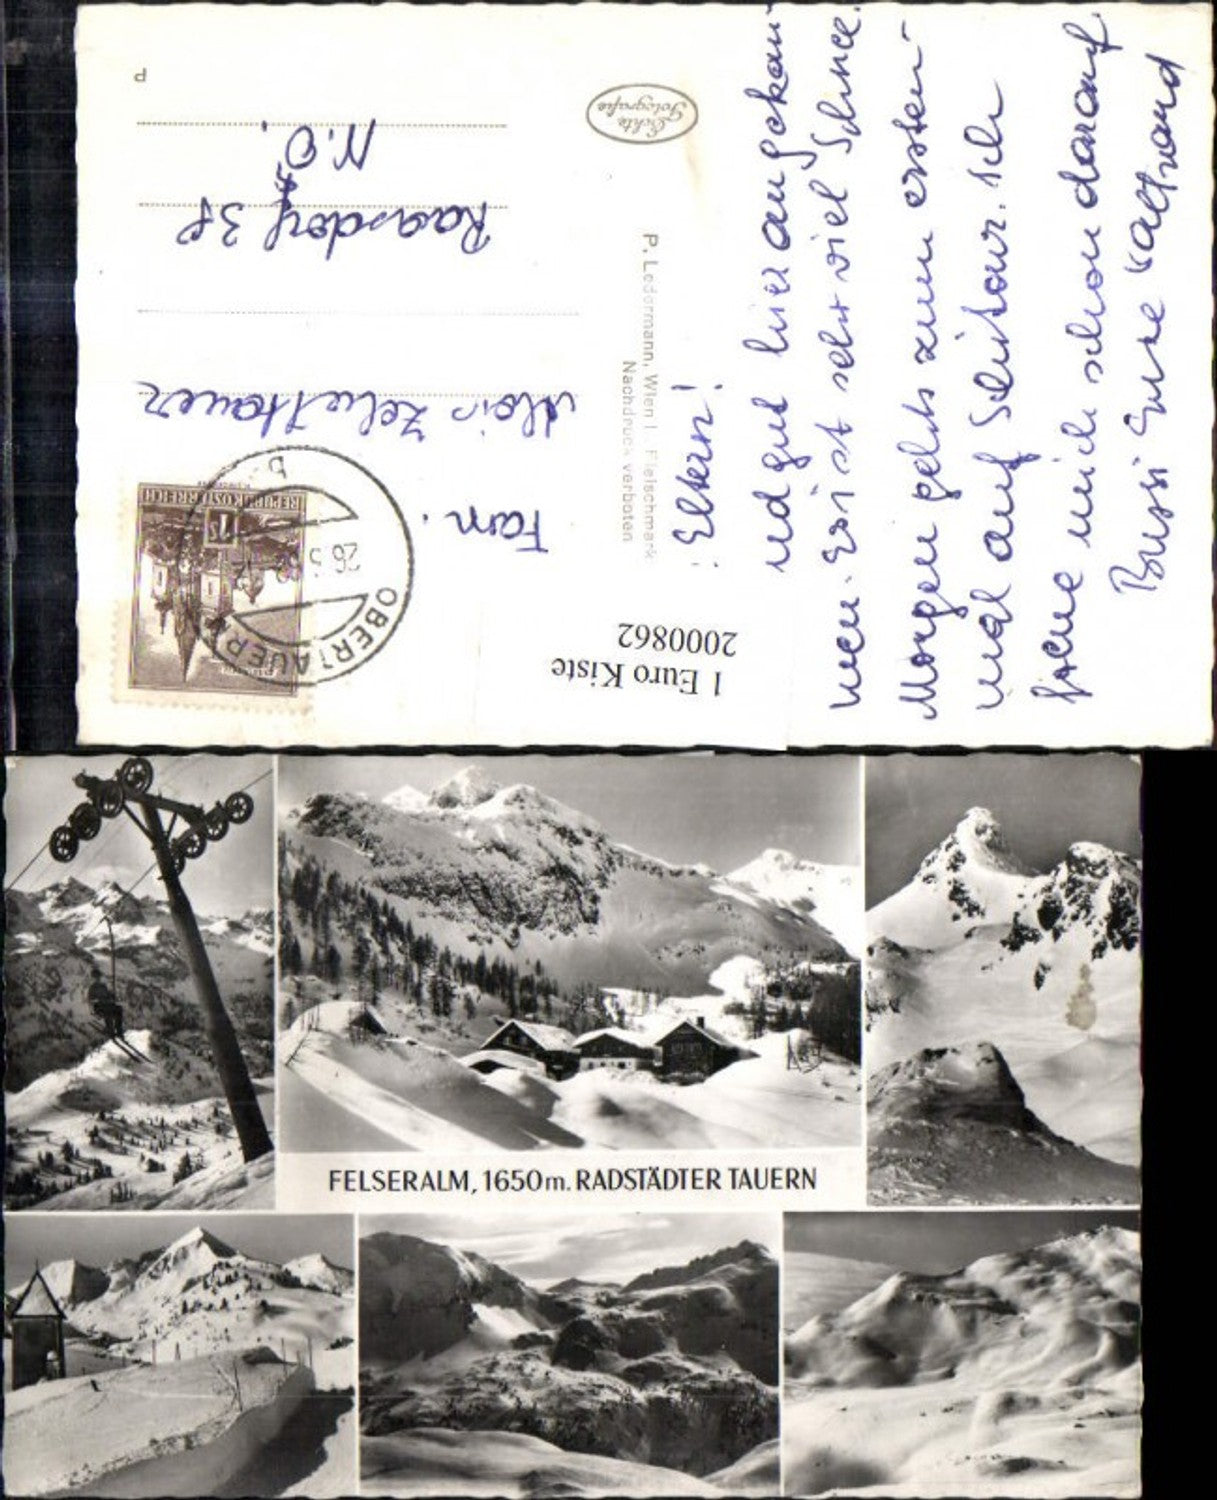 P
Echte
Fotografie
P. Ledermann, Wien I., Fleischmarkt
Nachdruck verboten
Fam.
Mair Zehethauer
Raasdorf 38
N.Ö.
REPUBLIK ÖSTERREICH
1
OBERTAUERN
b
1 Euro Kiste
2000862
! Eltern!
sind gut hier angekom-
men. Es ist sehr viel Schnee.
Morgen gehts zum ersten-
mal auf Schitour. Ich
freue mich schon darauf
Bussi Eure Waltraud
FELSERALM, 1650m. RADSTÄDTER TAUERN